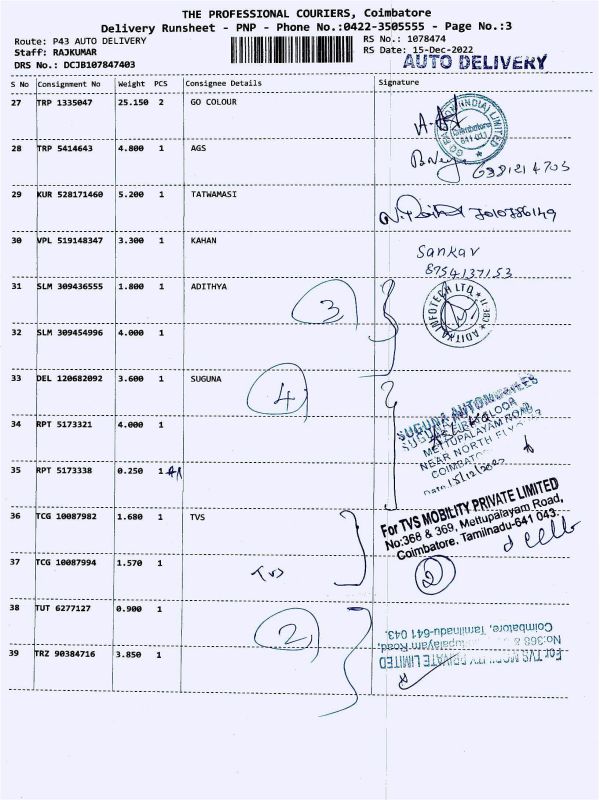 THE PROFESSIONAL COURIERS, Coimbatore
Delivery Runsheet - PNP - Phone No.:0422-3505555 - Page No.:3
Route: P43 AUTO DELIVERY RS No.: 1078474
Staff: RAJKUMAR RS Date: 15-Dec-2022
DRS No.: DCJB107847403 AUTO DELIVERY
S No Consignment No Weight PCS Consignee Details Signature
27 TRP 1335047 25.150 2 GO COLOUR
(INDIA) LIMITED
Coimbatore
641 043
28 TRP 5414643 4.800 1 AGS
29 KUR 528171460 5.200 1 TATWAMASI
7010786149
30 VPL 519148347 3.300 1 KAHAN
Sankar
8754137153
31 SLM 309436555 1.800 1 ADITHYA
3
ADITYA INFOTECH LTD
32 SLM 309454996 4.000 1
33 DEL 120682092 3.600 1 SUGUNA
4
SUGUNA AUTOMOBILES
34 RPT 5173321 4.000 1
METTUPALAYAM ROAD
NEAR NORTH
COIMBATORE
35 RPT 5173338 0.250 1
Date 15/12/2022
36 TCG 10087982 1.680 1 TVS
For TVS MOBILITY PRIVATE LIMITED
No:368 & 369, Mettupalayam Road,
Coimbatore, Tamilnadu-641 043.
37 TCG 10087994 1.570 1
TVS
2
38 TUT 6277127 0.900 1
2
For TVS MOBILITY PRIVATE LIMITED
No:368 & Mettupalayam Road,
Coimbatore, Tamilnadu-641 043.
39 TRZ 90384716 3.850 1